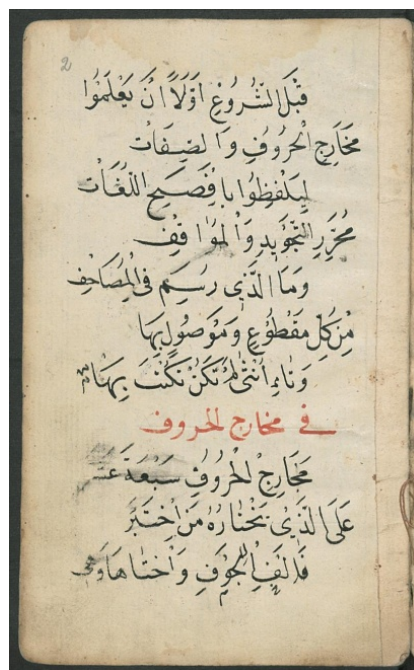 2
قَبْلَ الشُّرُوعِ اَوَّلاً اَنْ يَعْلَمُوا
مَخَارِجَ الْحُرُوفِ وَالصِّفَاتِ
لِيَلْفِظُوا بِاَفْصَحِ اللُّغَاتِ
مُحَرِّرِ التَّجْوِيدِ وَالْمَوَاقِفِ
وَمَا الَّذِي رُسِمَ فِي الْمَصَاحِفِ
مِنْ كُلِّ مَقْطُوعٍ وَمَوْصُولٍ بِهَا
وَتَاءِ اُنْثَى لَمْ تَكُنْ تُكْتَبْ بِهَا
فى مخارج الحروف
مَخَارِجُ الْحُرُوفِ سَبْعَةَ عَشَر
عَلَى الَّذِي يَخْتَارُهُ مَنِ اخْتَبَرْ
فَاَلِفُ الْجَوْفِ وَاُخْتَاهَا وَهِى